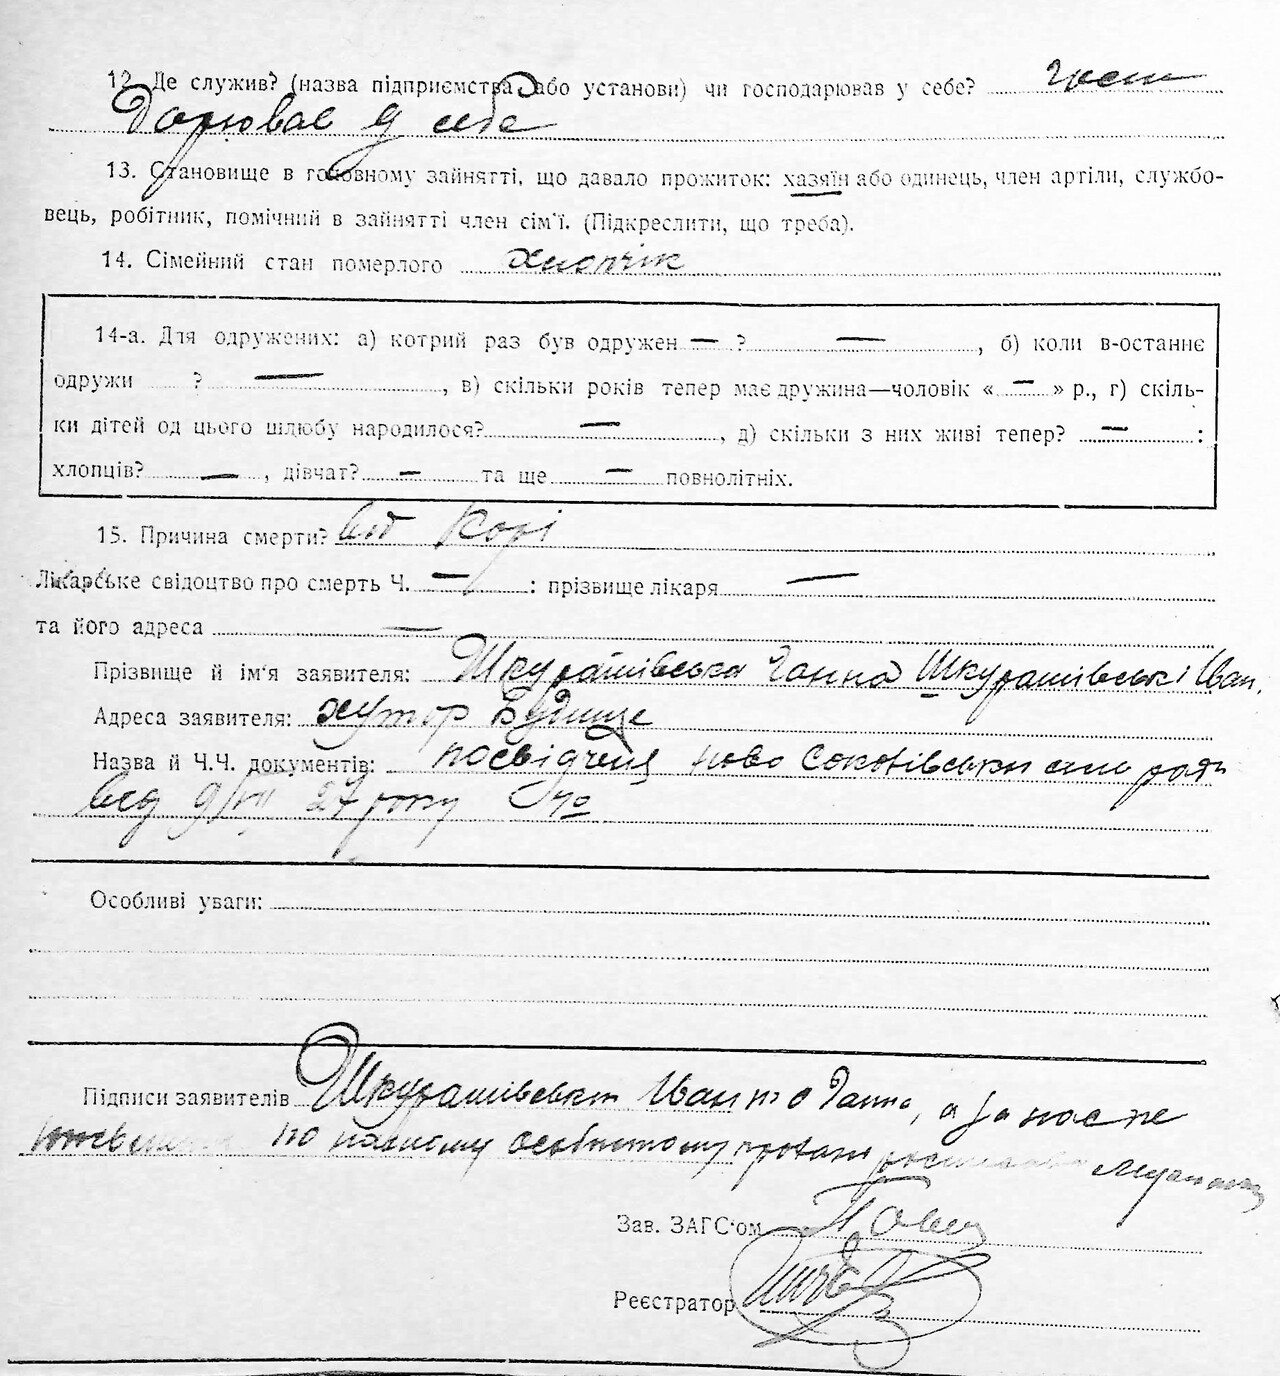 12. Де служив? (назва підприємства або установи) чи господарював у себе? госп
дарював у себе
13. Становище в головному зайнятті, що давало прожиток: хазяїн або одинець, член артіли, службо-
вець, робітник, помічний в зайнятті член сім'ї. (Підкреслити, що треба).
14. Сімейний стан померлого хлопчік
14-а. Для одружених: а) котрий раз був одружен — ? —, б) коли в-останнє
одружи ? —, в) скільки років тепер має дружина—чоловік « — » р., г) скіль-
ки дітей од цього шлюбу народилося? —, д) скільки з них живі тепер? — :
хлопців? —, дівчат? — та ще — повнолітніх.
15. Причина смерти? від корі
Лікарське свідоцтво про смерть Ч. — : прізвище лікаря —
та його адреса —
Прізвище й ім'я заявителя: Шкурашівська Ганна Шкурашівські Іван
Адреса заявителя: хутор Будище
Назва й Ч.Ч. документів: посвідченя ново
від 27 року
Особливі уваги:
Підписи заявителів Іван Ганна, а за нас не
по нашому особистому
Зав. ЗАГС'ом
Реєстратор